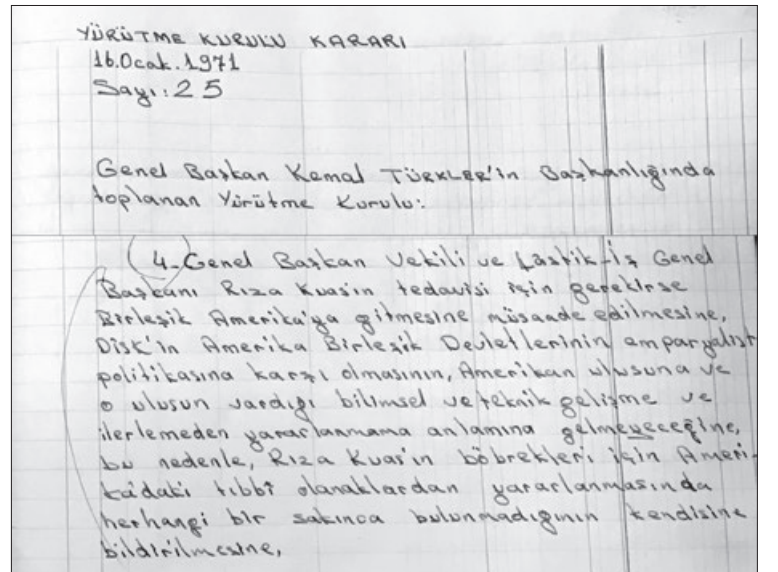 YÜRÜTME KURULU KARARI
16.Ocak.1971
Sayı:25
Genel Başkan Kemal TÜRKLER'in Başkanlığında
toplanan Yürütme Kurulu:
4-Genel Başkan Vekili ve Lâstik-İş Genel
Başkanı Rıza Kuas'ın tedavisi için gerekirse
Birleşik Amerika'ya gitmesine müsaade edilmesine,
DİSK'in Amerika Birleşik Devletlerinin emparyalist
politikasına karşı olmasının, Amerikan ulusuna ve
o ulusun vardığı bilimsel ve teknik gelişme ve
ilerlemeden yararlanmama anlamına gelmeyeceğine,
bu nedenle, Rıza Kuas'ın böbrekleri için Ameri-
ka'daki tıbbî olanaklardan yararlanmasında
herhangi bir sakınca bulunmadığının kendisine
bildirilmesine,